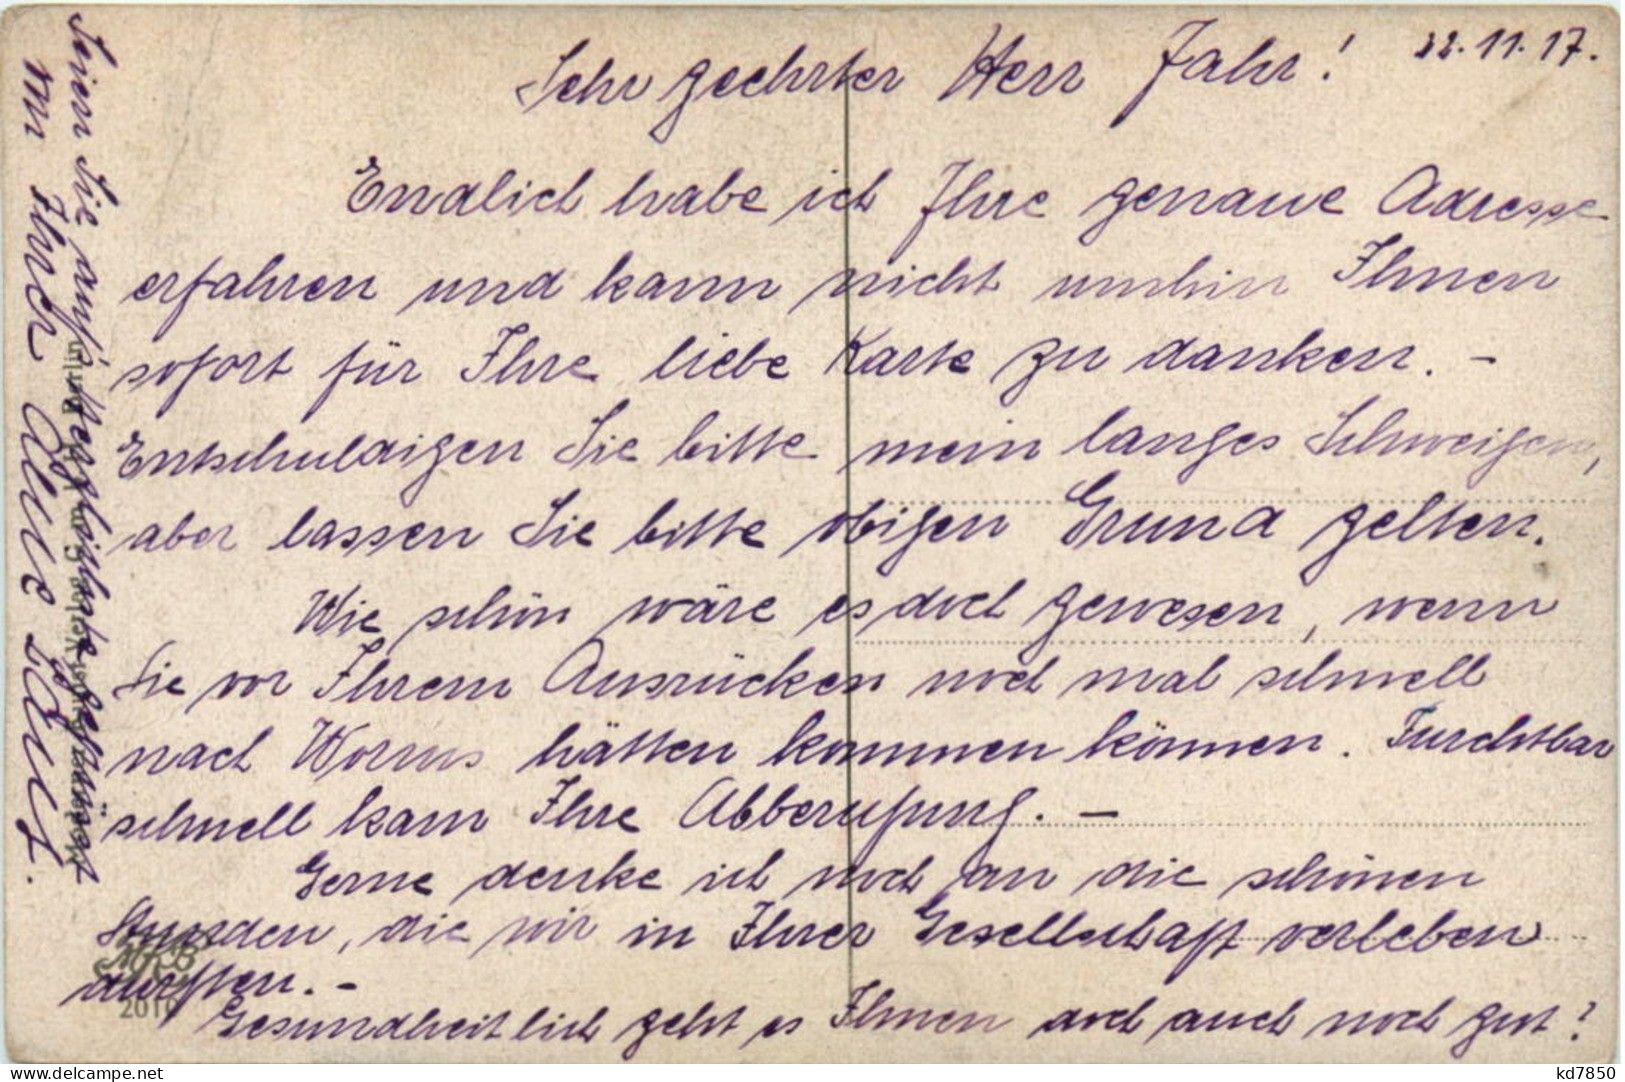 22.11.17.
Sehr geehrter Herr Jahr!
Endlich habe ich Ihre genaue Adresse
erfahren und kann nicht umhin Ihnen
sofort für Ihre liebe Karte zu danken. –
Entschuldigen Sie bitte mein langes Schweigen,
aber lassen Sie bitte obigen Grund gelten.
Wie schön wäre es doch gewesen, wenn
Sie vor Ihrem Ausrücken noch mal schnell
nach Worms hätten kommen können. Furchtbar
schnell kam Ihre Abberufung. –
Gerne denke ich noch an die schönen
Stunden, die wir in Ihrer Gesellschaft verleben
durften. –
Gesundheitlich geht es Ihnen doch auch noch gut?
Seien Sie aufs herzlichste gegrüsst
von Ihrer
2016
kd7850